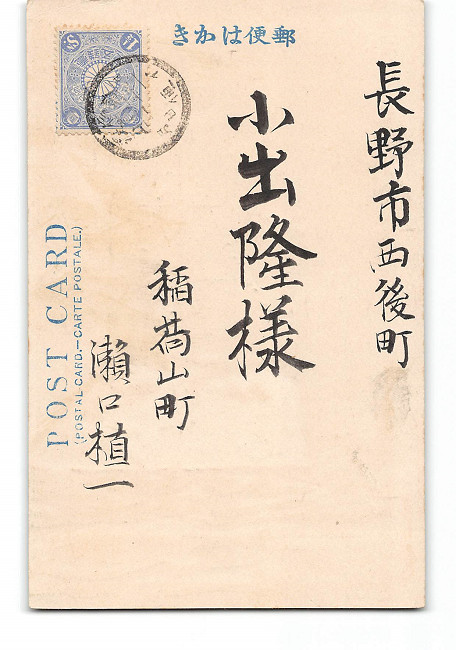 郵便はかき
長野市西後町
小出隆様
稲荷山町
瀬口植一
POST CARD
(POSTAL CARD.—CARTE POSTALE.)